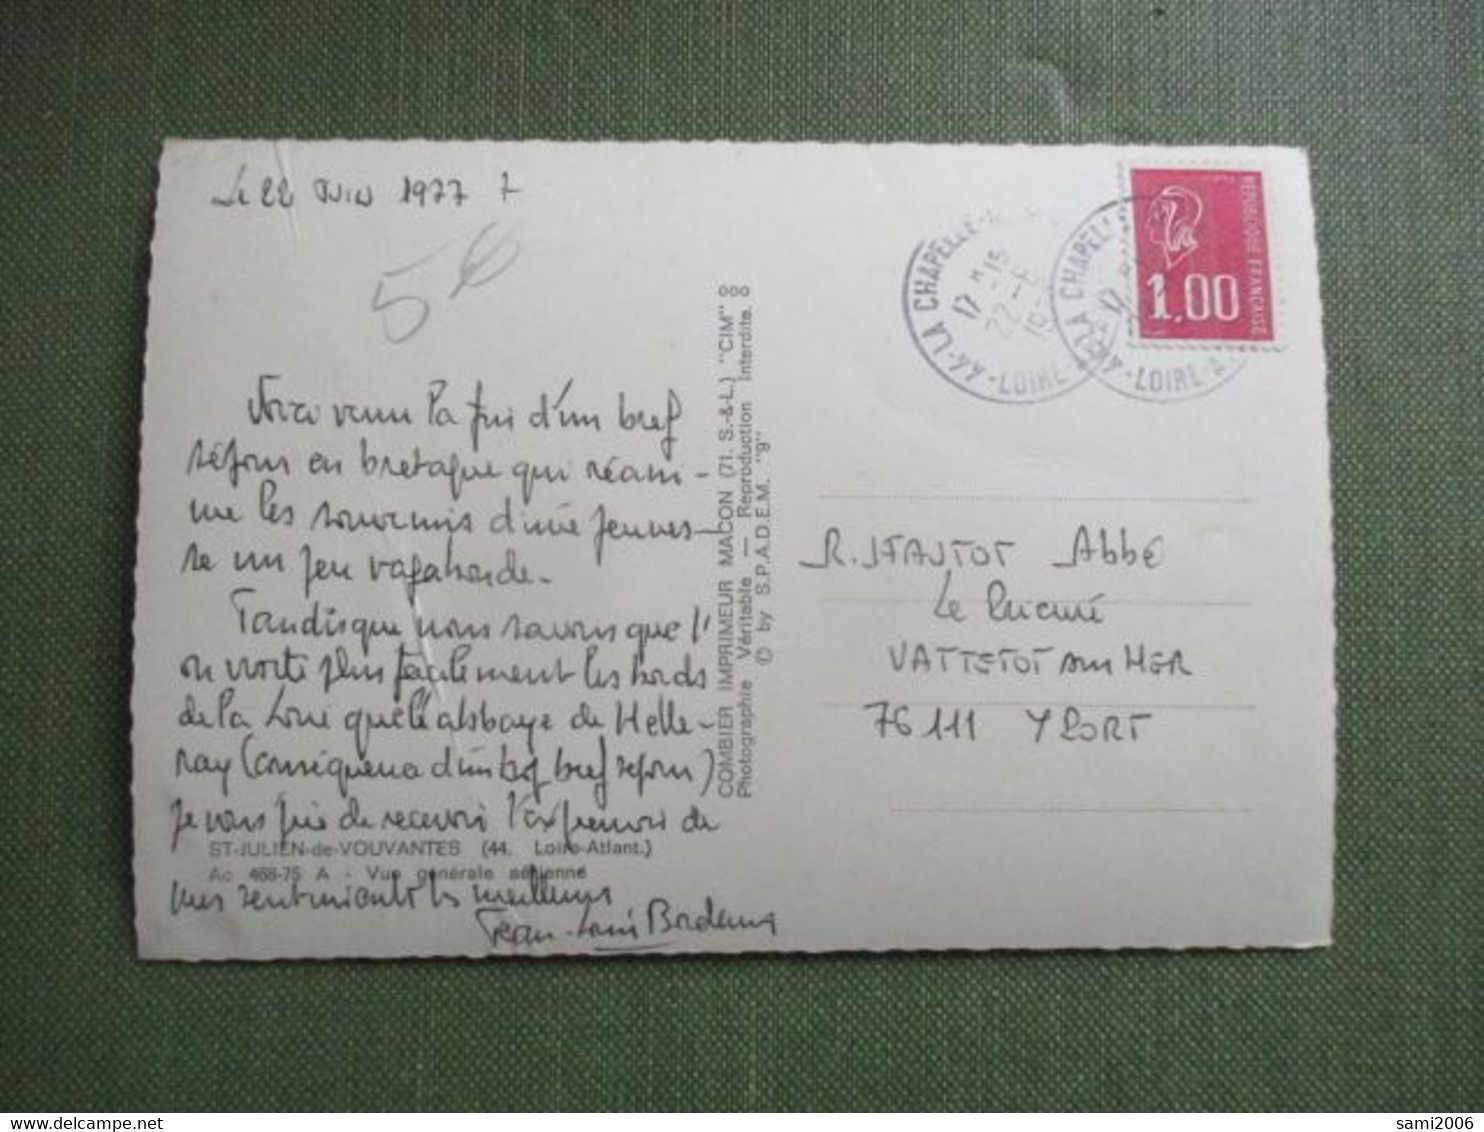 Le 22 Juin 1977
56
Voici venu la fin d'un bref
séjour en bretagne qui réani-
me les souvenirs d'une jeunes-
se un peu vagabonde.
Tandisque nous savons que l'
on visite plus facilement les bords
de la Loire que l'abbaye de Melle-
ray (conséquence d'un bref séjour)
Je vous prie de recevoir l'expression de
mes sentiments les meilleurs
Jean-Louis
ST-JULIEN-de-VOUVANTES (44. Loire-Atlant.)
Ac 468-75 A - Vue générale aérienne
COMBIER IMPRIMEUR MACON (71. S.-&-L.) "CIM"
Photographie Véritable — Reproduction Interdite.
© by S.P.A.D.E.M. "9"
44-LA CHAPELLE
17 H 15
22-6
LOIRE
44-LA CHAPELLE
17
LOIRE-A
REPUBLIQUE FRANCAISE
1,00
Abbé
VATTETOT sur MER
76111 YPORT
sami2006